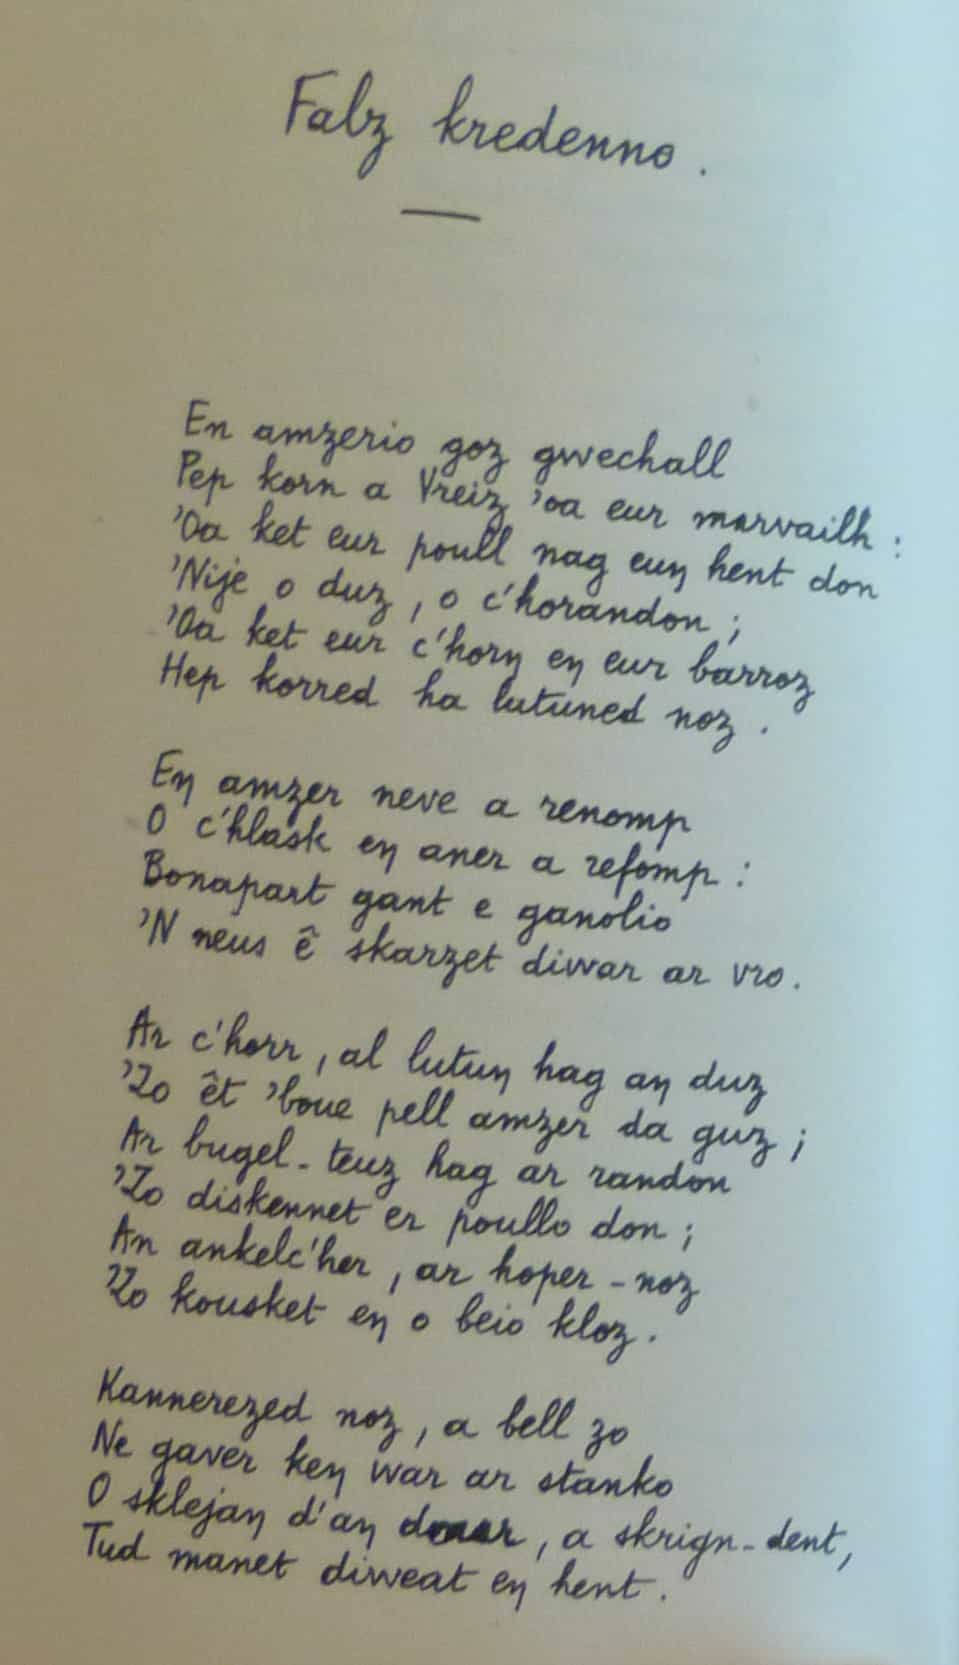 Falz kredenno.
En amzerio goz gwechall
Pep korn a Vreiz 'oa eur marvailh :
'Oa ket eur poull nag euŋ hent don
'Nije o duz, o c'horandon ;
'Oa ket eur c'horŋ eŋ eur barroz
Hep korred ha lutuned noz.
Eŋ amzer neve a renomp
O c'hlask eŋ aner a refomp :
Bonapart gant e ganolio
'N neus ê skarzet diwar ar vro.
Ar c'horr, al lutuŋ hag aŋ duz
'Zo êt 'boue pell amzer da guz ;
Ar bugel-teuz hag ar randon
'Zo diskennet er poullo don ;
An ankelc'her, ar hoper-noz
'Zo kousket eŋ o beio kloz.
Kannerezed noz, a bell zo
Ne gaver keŋ war ar stanko
O sklejaŋ d'aŋ douar, a skrign-dent,
Tud manet diweat eŋ hent.